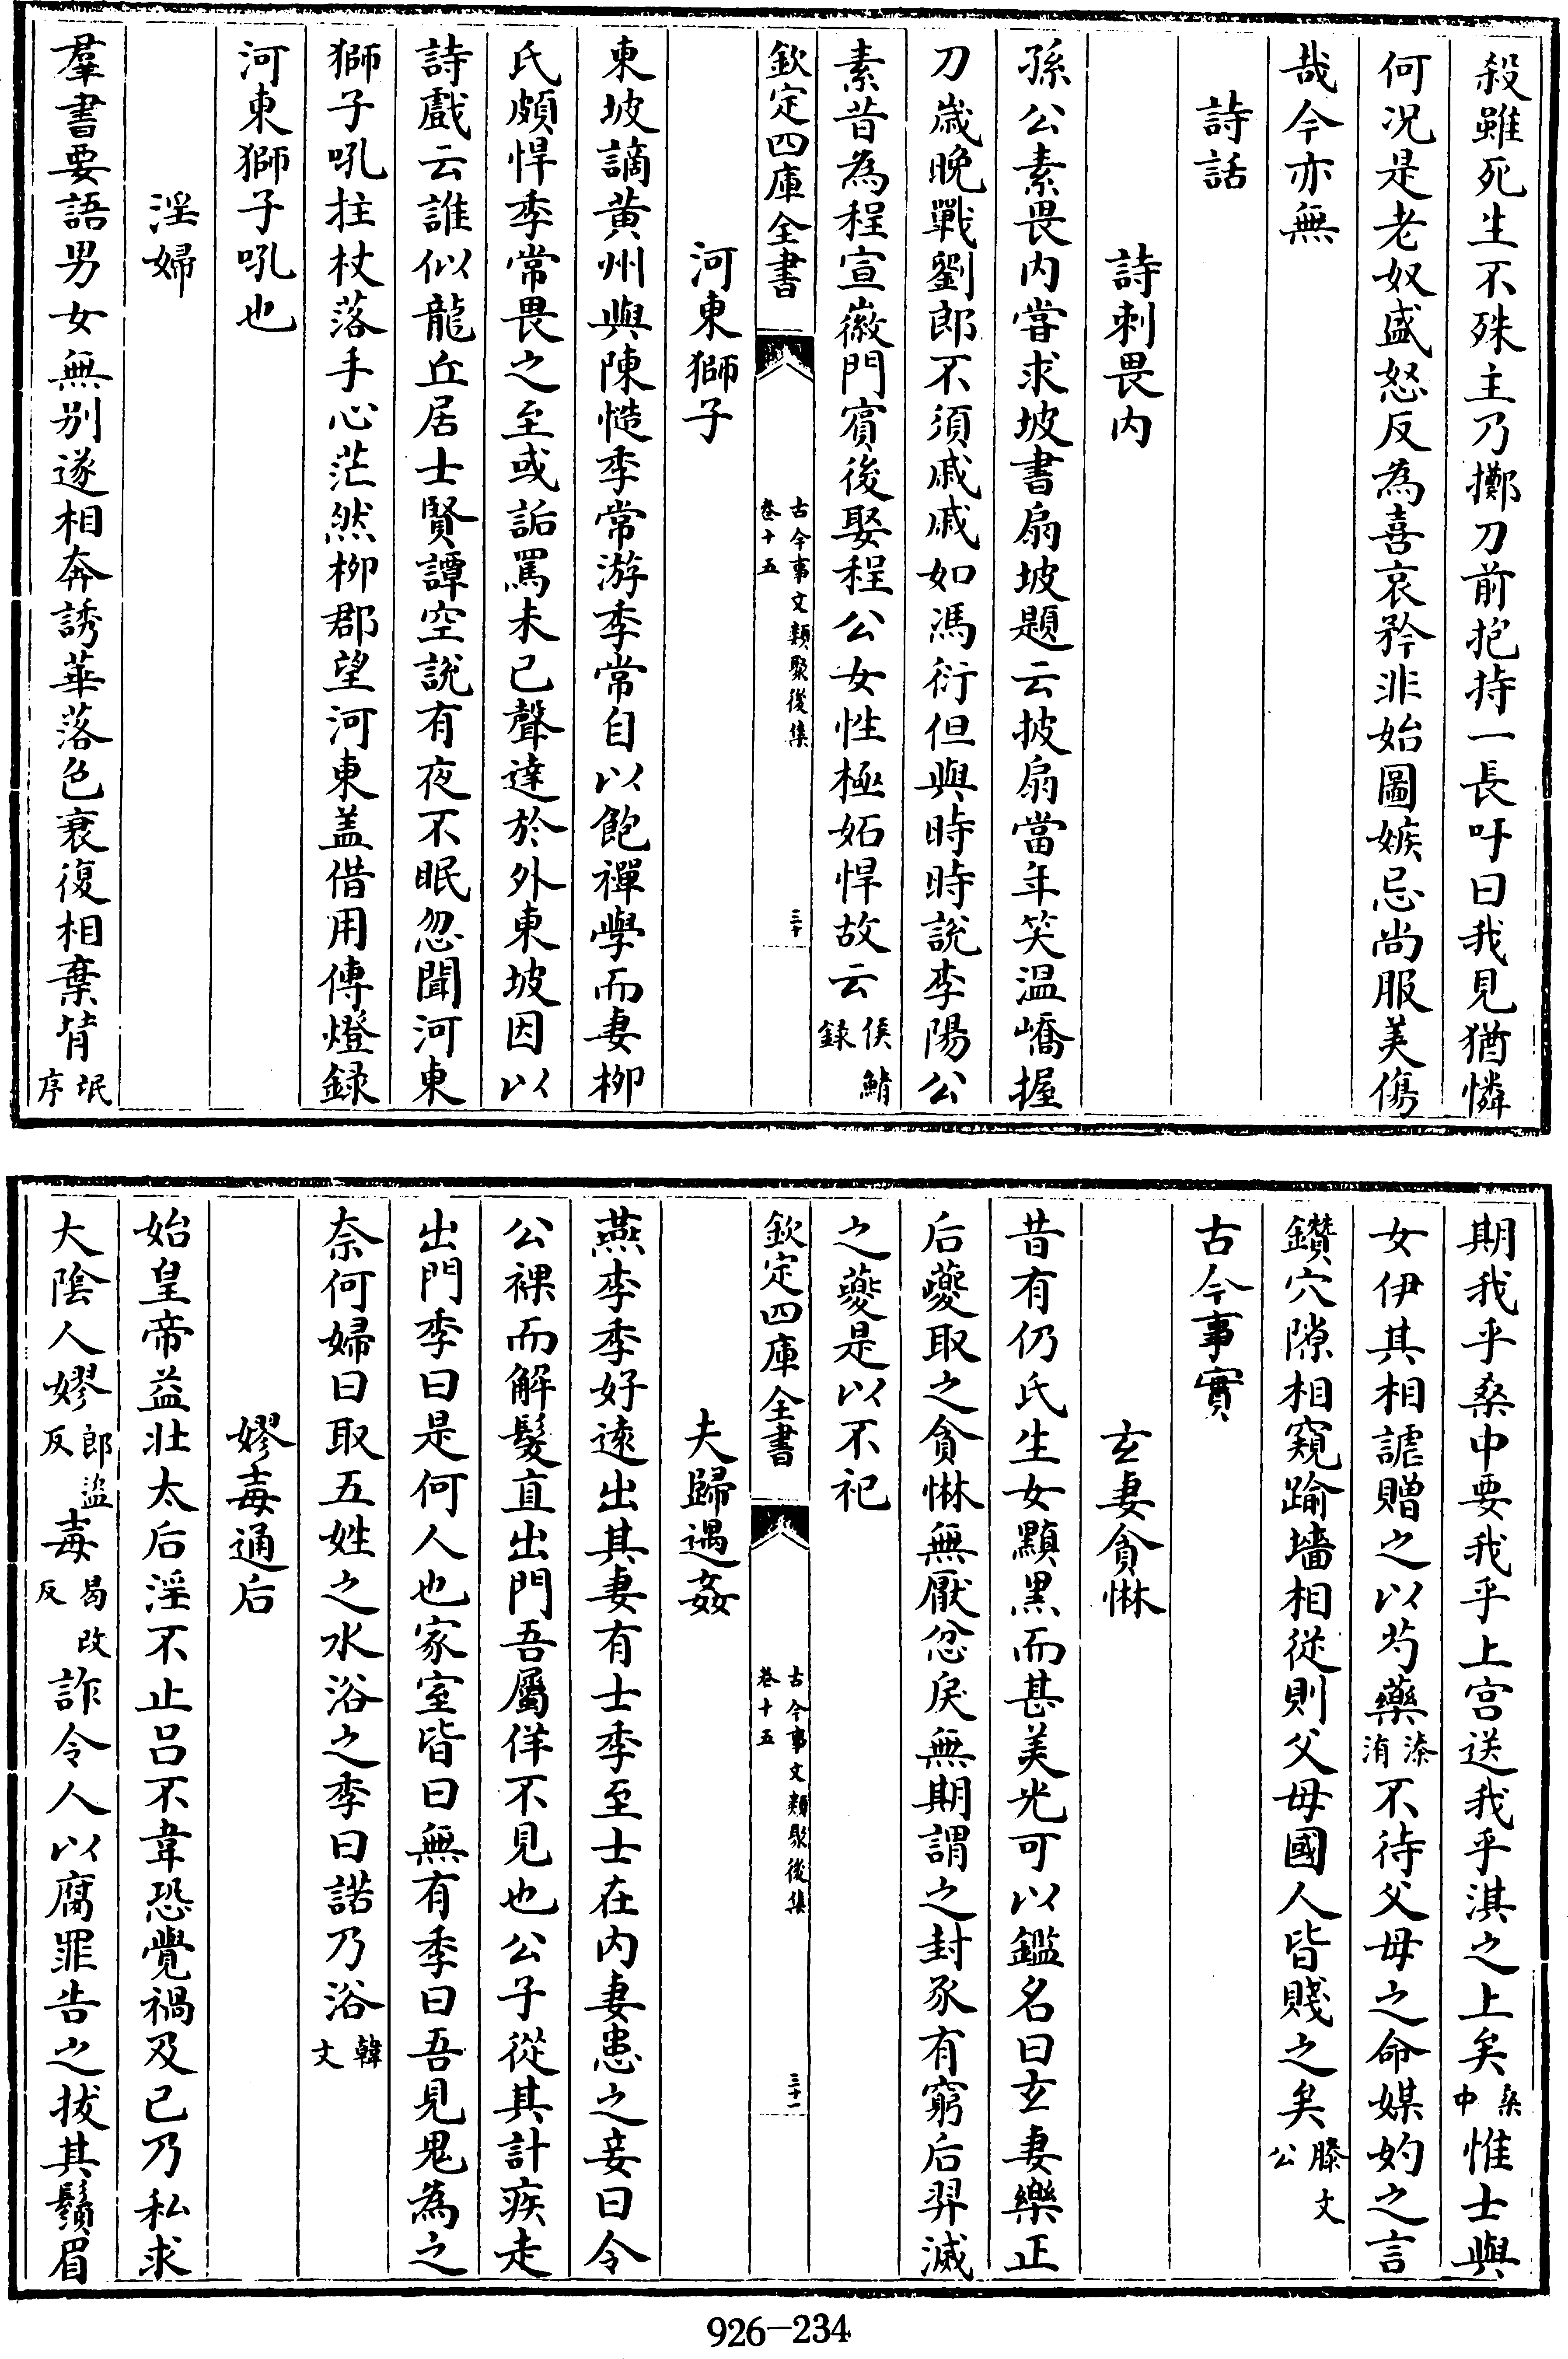 殺雖死生不殊主乃擲刀前抱持一長吁曰我見猶憐
何况是老奴盛怒反為喜哀矜非始圖嫉忌尚服美傷
哉今亦無
詩話
詩刺畏内
孫公素畏内嘗求坡書扇坡題云披扇當年笑温嶠握
刀歳晚戰劉郎不須戚戚如馮衍但與時時說李陽公
素昔為程宣徽門賓後娶程公女性極妬悍故云侯鯖録
欽定四庫全書 古今事文類聚後集 卷十五 三十
河東獅子
東坡謫黄州與陳慥季常游季常自以飽禪學而妻柳
氏頗悍季常畏之至或詬罵未已聲達於外東坡因以
詩戲云誰似龍丘居士賢譚空說有夜不眠忽聞河東
獅子吼拄杖落手心茫然柳郡望河東盖借用傳燈録
河東獅子吼也
淫婦
羣書要語男女無别遂相奔誘華落色衰復相棄背氓序
期我乎桑中要我乎上宫送我乎淇之上矣桑中惟士與
女伊其相謔贈之以芍藥溱洧不待父母之命媒妁之言
鑽穴隙相窺踰墻相從則父母國人皆賤之矣滕文公
古今事實
玄妻貪惏
昔有仍氏生女黰黒而甚美光可以鑑名曰玄妻樂正
后夔取之貪惏無厭忿戾無期謂之封豕有窮后羿滅
之夔是以不祀
欽定四庫全書 古今事文類聚後集 卷十五 三十一
夫歸遇姦
燕李季好遠出其妻有士季至士在内妻患之妾曰令
公裸而解髮直出門吾屬佯不見也公子從其計疾走
出門季曰是何人也家室皆曰無有季曰吾見鬼為之
奈何婦曰取五姓之水浴之季曰諾乃浴韓文
嫪毐通后
始皇帝益壯太后淫不止吕不韋恐覺禍及已乃私求
大隂人嫪郎盗反毐曷改反詐令人以腐罪告之拔其鬚眉
926-234